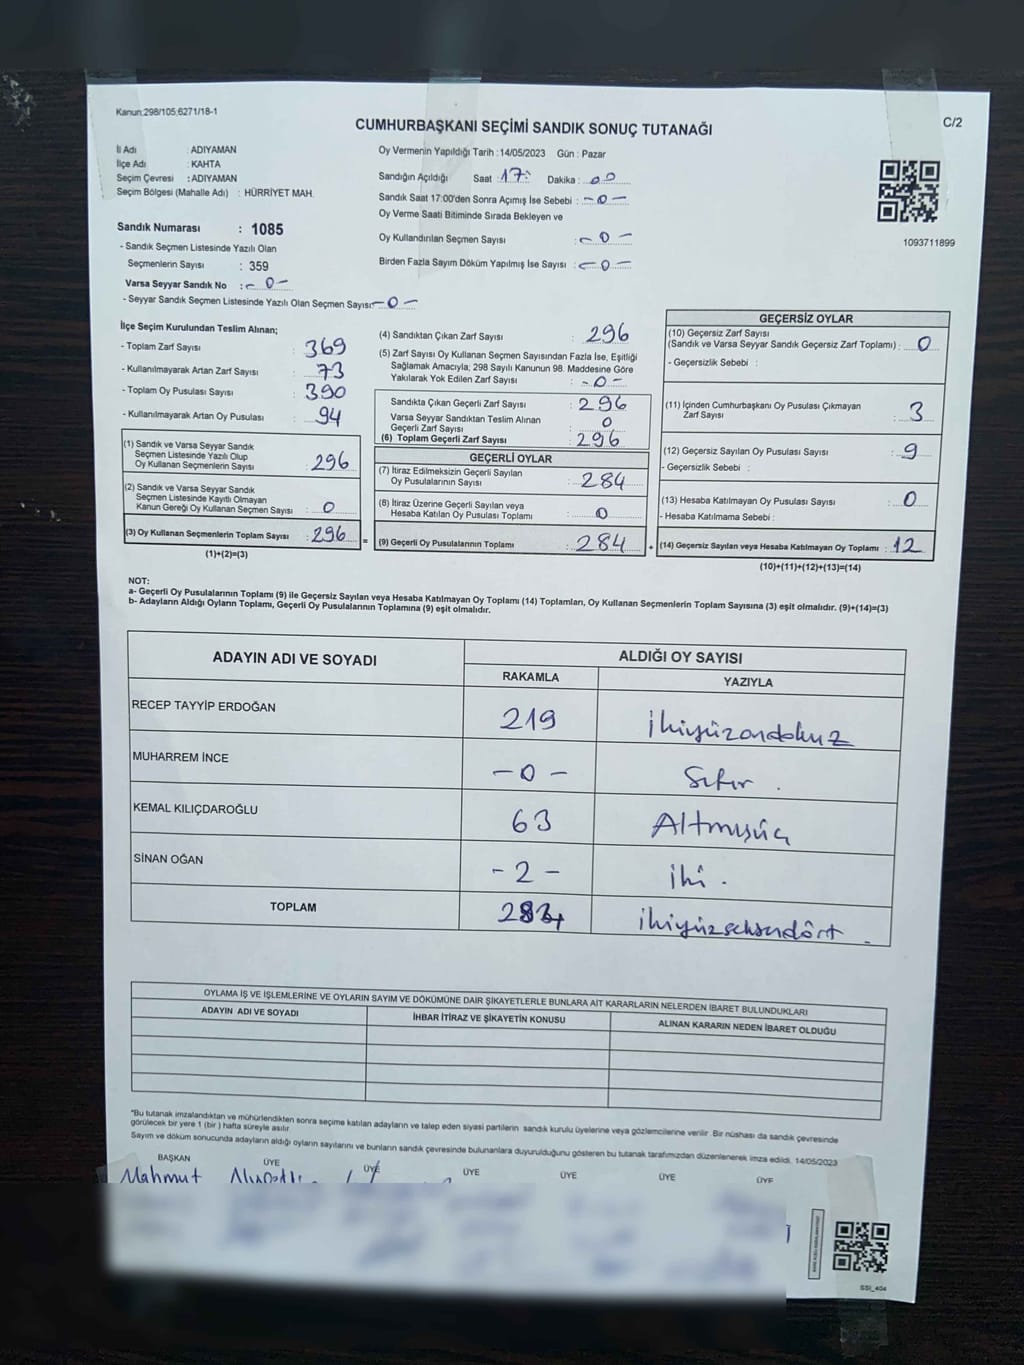 Kanun:298/105;6271/18-1
C/2
CUMHURBAŞKANI SEÇİMİ SANDIK SONUÇ TUTANAĞI
İl Adı : ADIYAMAN
İlçe Adı : KAHTA
Seçim Çevresi : ADIYAMAN
Seçim Bölgesi (Mahalle Adı) : HÜRRİYET MAH.
Sandık Numarası : 1085
- Sandık Seçmen Listesinde Yazılı Olan
Seçmenlerin Sayısı : 359
Varsa Seyyar Sandık No : - 0 -
- Seyyar Sandık Seçmen Listesinde Yazılı Olan Seçmen Sayısı: - 0 -
Oy Vermenin Yapıldığı Tarih : 14/05/2023 Gün : Pazar
Sandığın Açıldığı Saat : 17: Dakika : 00
Sandık Saat 17:00'den Sonra Açımış İse Sebebi : - 0 -
Oy Verme Saati Bitiminde Sırada Bekleyen ve
Oy Kullandırılan Seçmen Sayısı : - 0 -
Birden Fazla Sayım Döküm Yapılmış İse Sayısı : - 0 -
1093711899
İlçe Seçim Kurulundan Teslim Alınan;
- Toplam Zarf Sayısı : 369
- Kullanılmayarak Artan Zarf Sayısı : 73
- Toplam Oy Pusulası Sayısı : 390
- Kullanılmayarak Artan Oy Pusulası : 94
(1) Sandık ve Varsa Seyyar Sandık
Seçmen Listesinde Yazılı Olup
Oy Kullanan Seçmenlerin Sayısı : 296
(2) Sandık ve Varsa Seyyar Sandık
Seçmen Listesinde Kayıtlı Olmayan
Kanun Gereği Oy Kullanan Seçmen Sayısı : 0
(3) Oy Kullanan Seçmenlerin Toplam Sayısı : 296
(1)+(2)=(3)
(4) Sandıktan Çıkan Zarf Sayısı : 296
(5) Zarf Sayısı Oy Kullanan Seçmen Sayısından Fazla İse, Eşitliği
Sağlamak Amacıyla; 298 Sayılı Kanunun 98. Maddesine Göre
Yakılarak Yok Edilen Zarf Sayısı : - 0 -
Sandıkta Çıkan Geçerli Zarf Sayısı : 296
Varsa Seyyar Sandıktan Teslim Alınan
Geçerli Zarf Sayısı : 0
(6) Toplam Geçerli Zarf Sayısı : 296
GEÇERLİ OYLAR
(7) İtiraz Edilmeksizin Geçerli Sayılan
Oy Pusulalarının Sayısı : 284
(8) İtiraz Üzerine Geçerli Sayılan veya
Hesaba Katılan Oy Pusulası Toplamı : 0
= (9) Geçerli Oy Pusulalarının Toplamı : 284 +
GEÇERSİZ OYLAR
(10) Geçersiz Zarf Sayısı
(Sandık ve Varsa Seyyar Sandık Geçersiz Zarf Toplamı) : 0
- Geçersizlik Sebebi :
(11) İçinden Cumhurbaşkanı Oy Pusulası Çıkmayan
Zarf Sayısı : 3
(12) Geçersiz Sayılan Oy Pusulası Sayısı : 9
- Geçersizlik Sebebi :
(13) Hesaba Katılmayan Oy Pusulası Sayısı : 0
- Hesaba Katılmama Sebebi :
(14) Geçersiz Sayılan veya Hesaba Katılmayan Oy Toplamı : 12
(10)+(11)+(12)+(13)=(14)
NOT:
a- Geçerli Oy Pusulalarının Toplamı (9) ile Geçersiz Sayılan veya Hesaba Katılmayan Oy Toplamı (14) Toplamları, Oy Kullanan Seçmenlerin Toplam Sayısına (3) eşit olmalıdır. (9)+(14)=(3)
b- Adayların Aldığı Oyların Toplamı, Geçerli Oy Pusulalarının Toplamına (9) eşit olmalıdır.
ADAYIN ADI VE SOYADI ALDIĞI OY SAYISI
RAKAMLA YAZIYLA
RECEP TAYYİP ERDOĞAN 219 ikiyüzondokuz
MUHARREM İNCE - 0 - Sıfır .
KEMAL KILIÇDAROĞLU 63 Altmışüç
SİNAN OĞAN - 2 - iki .
TOPLAM 284 ikiyüzseksendört
OYLAMA İŞ VE İŞLEMLERİNE VE OYLARIN SAYIM VE DÖKÜMÜNE DAİR ŞİKAYETLERLE BUNLARA AİT KARARLARIN NELERDEN İBARET BULUNDUKLARI
ADAYIN ADI VE SOYADI İHBAR İTİRAZ VE ŞİKAYETİN KONUSU ALINAN KARARIN NEDEN İBARET OLDUĞU
*Bu tutanak imzalandıktan ve mühürlendikten sonra seçime katılan adayların ve talep eden siyasi partilerin sandık kurulu üyelerine veya gözlemcilerine verilir. Bir nüshası da sandık çevresinde
görülecek bir yere 1 (bir ) hafta süreyle asılır
Sayım ve döküm sonucunda adayların aldığı oyların sayılarını ve bunların sandık çevresinde bulunanlara duyurulduğunu gösteren bu tutanak tarafımızdan düzenlenerek imza edildi. 14/05/2023
BAŞKAN ÜYE ÜYE ÜYE ÜYE ÜYE ÜYE
Mahmut
SSI_404